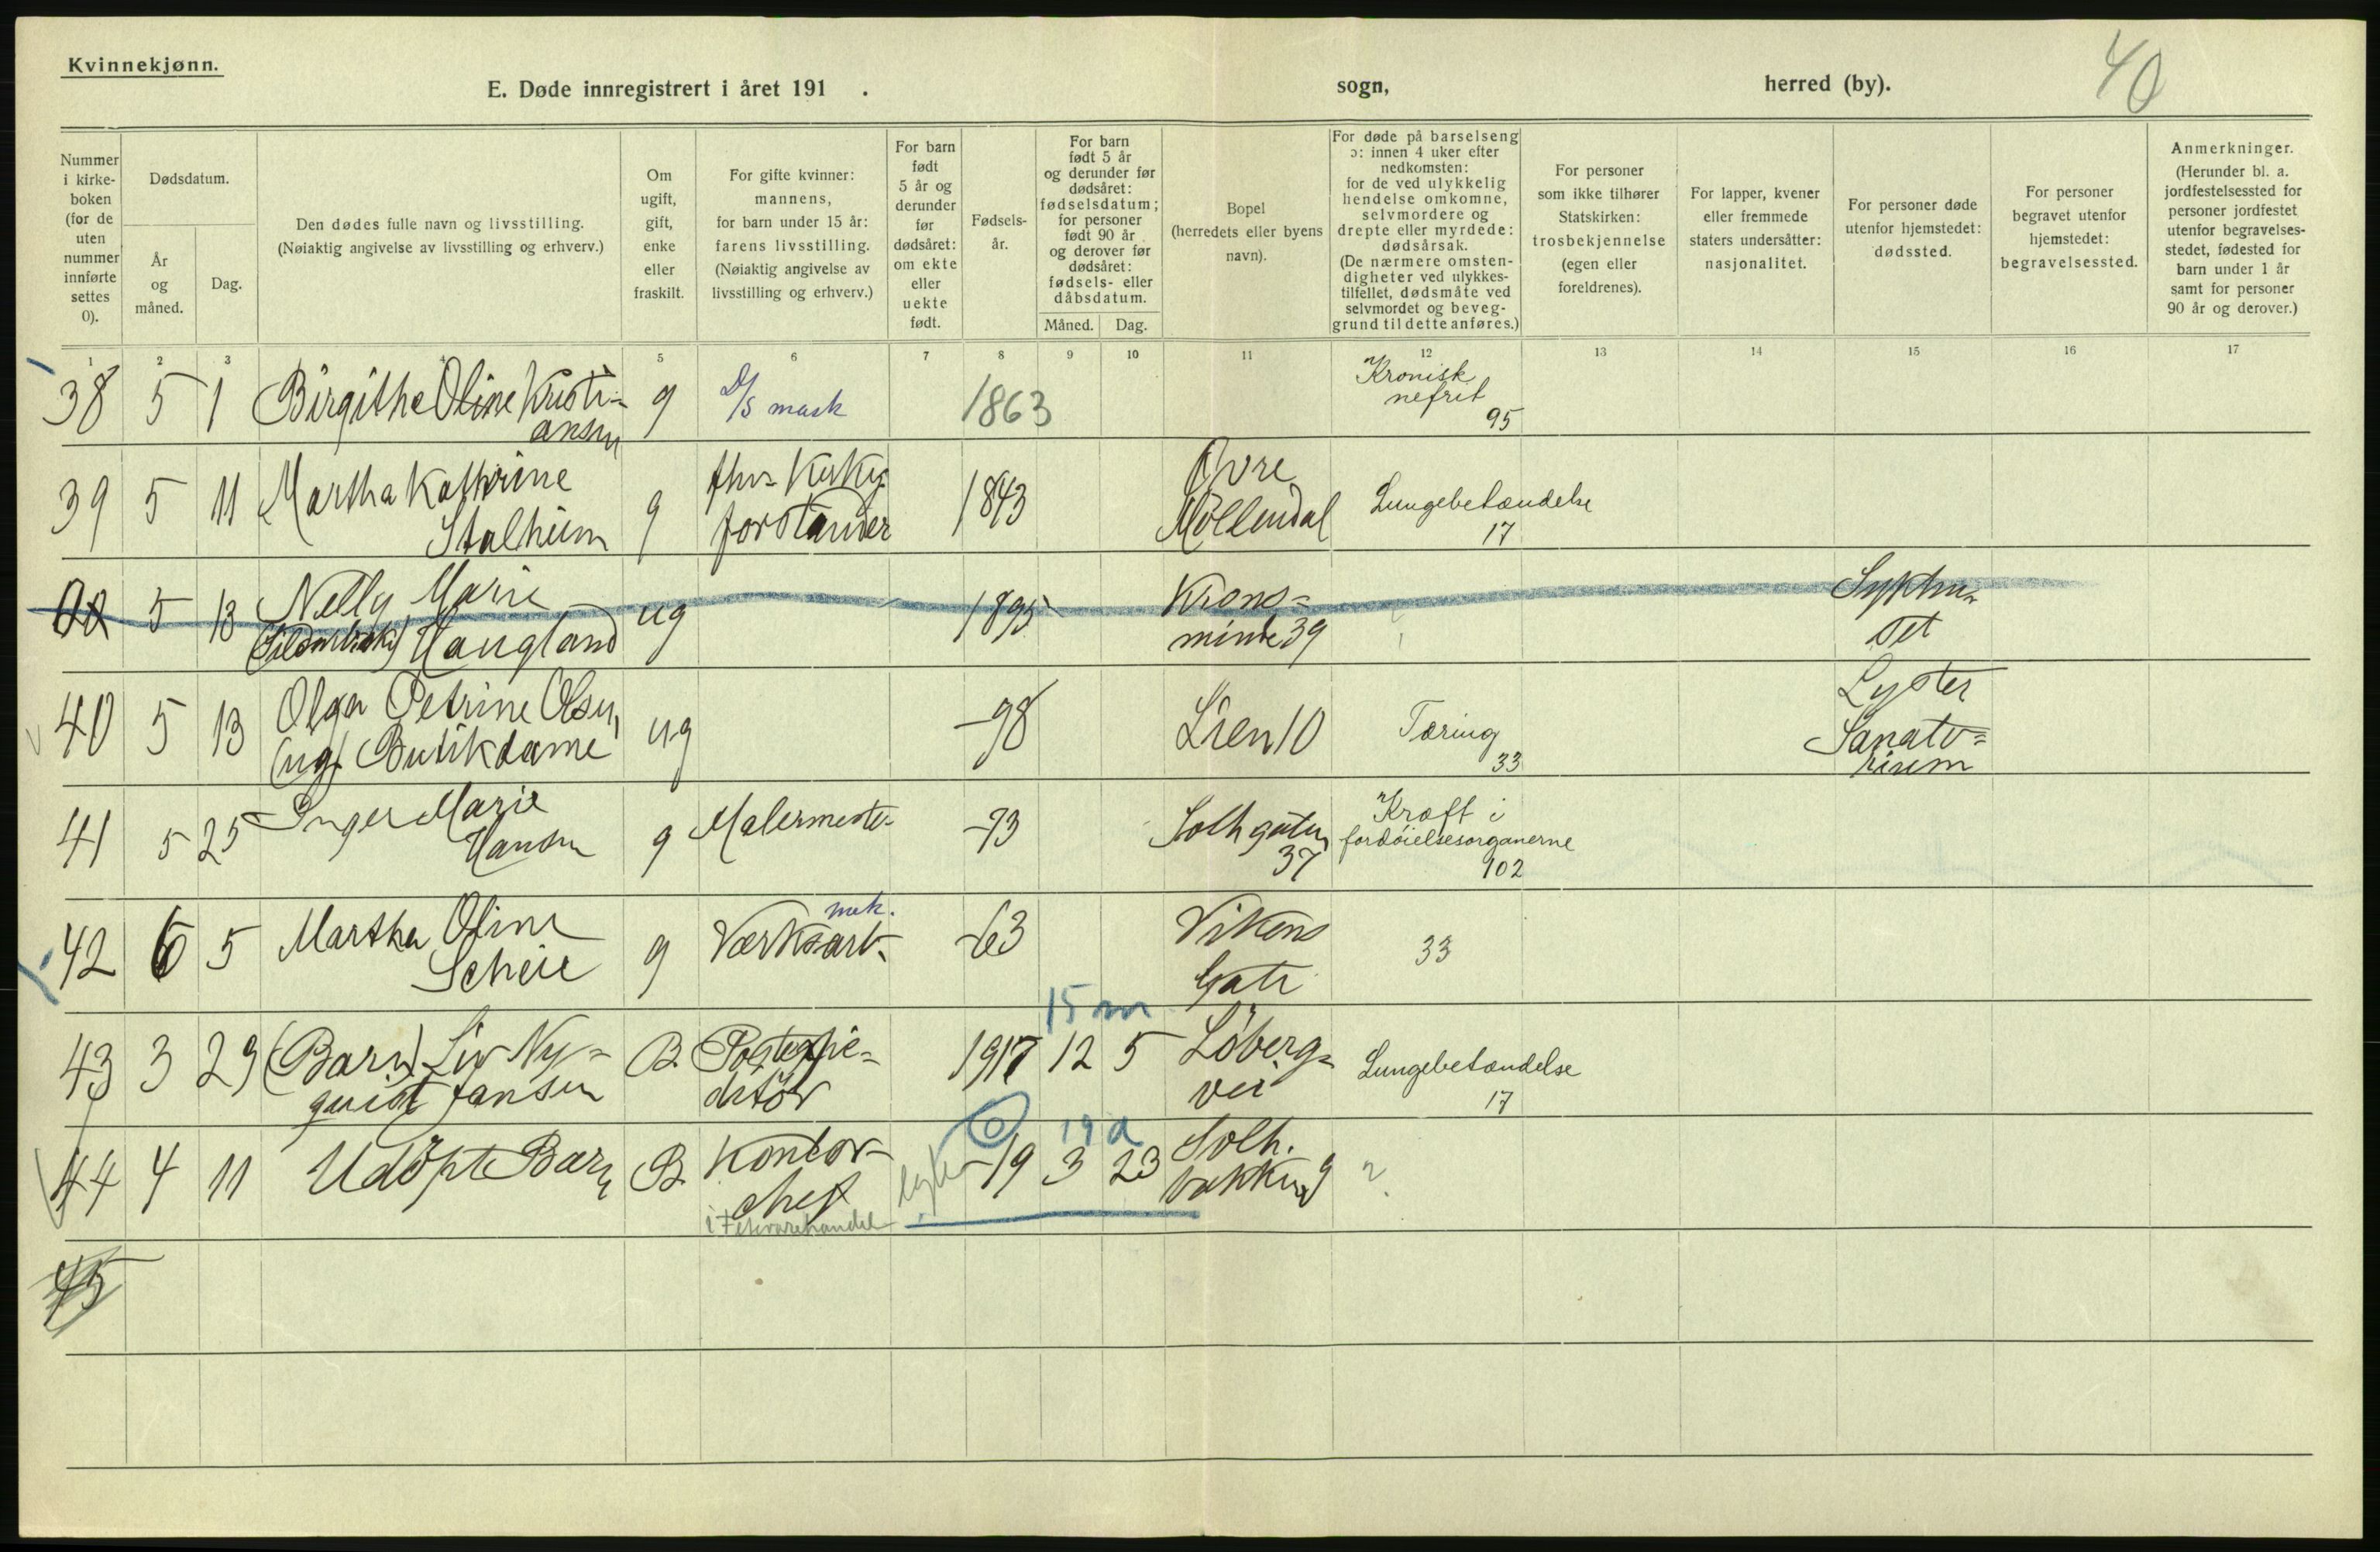 Kvinnekjønn.
40
E. Døde innregistrert i året 191 . sogn, herred (by).
Nummer i kirke-boken (for de uten nummer innførte settes 0).
Dødsdatum.
År og måned.
Dag.
Den dødes fulle navn og livsstilling.
(Nøiaktig angivelse av livsstilling og erhverv.)
Om ugift, gift, enke eller fraskilt.
For gifte kvinner: mannens, for barn under 15 år: farens livsstilling. (Nøiaktig angivelse av livsstilling og erhverv.)
For barn født 5 år og derunder før dødsåret: om ekte eller uekte født.
Fødsels-år.
For barn født 5 år og derunder før dødsåret: fødselsdatum; for personer født 90 år og derover før dødsåret: fødsels- eller dåbsdatum.
Måned. Dag.
Bopel (herredets eller byens navn).
For døde på barselseng ɔ: innen 4 uker efter nedkomsten: for de ved ulykkelig hendelse omkomne, selvmordere og drepte eller myrdede: dødsårsak. (De nærmere omsten-digheter ved ulykkes-tilfellet, dødsmåte ved selvmordet og beveg-grund til dette anføres.)
For personer som ikke tilhører Statskirken: trosbekjennelse (egen eller foreldrenes).
For lapper, kvener eller fremmede staters undersåtter: nasjonalitet.
For personer døde utenfor hjemstedet: dødssted.
For personer begravet utenfor hjemstedet: begravelsessted.
Anmerkninger. (Herunder bl. a. jordfestelsessted for personer jordfestet utenfor begravelses-stedet, fødested for barn under 1 år samt for personer 90 år og derover.)
1 2 3 4 5 6 7 8 9 10 11 12 13 14 15 16 17
38 5 1 Birgithe Oline Kristi-
ansen g D/S mask 1863 Kronisk
nefrit
95
39 5 11 Martha Kathrine
Stalheim g
forstander 1843 Øvre
Möllendal Lungebetændelse
17
5 13 Nelly Marie
Haugland ug 1895 Krons-
minde 39 Sykehu-
set
40 5 13 Olga Petrine Olsen,
(ug) Butikdame ug -98 Lien 10 Tæring
33 Lyster
Sanato-
rium
41 5 25 Inger Marie
Hansen g Malermeste- -73 Solhgaten
37 Kræft i
fordöielsesorganerne
102
42 6 5 Martha Oline
Scheie g mek.
Værksarb- -63 Vikens
Gate 33
43 3 29 (Barn) Liv Ny-
quist Jansen B. Postexpe-
ditör 1917 15 m
12 5 Löberg-
vei Lungebetændelse
17
44 4 11 Udöpt Barn B. Kontor-
chef
i Fetevarehandel -19 19 d
3 23 Solh.
bakken 9 ?
45